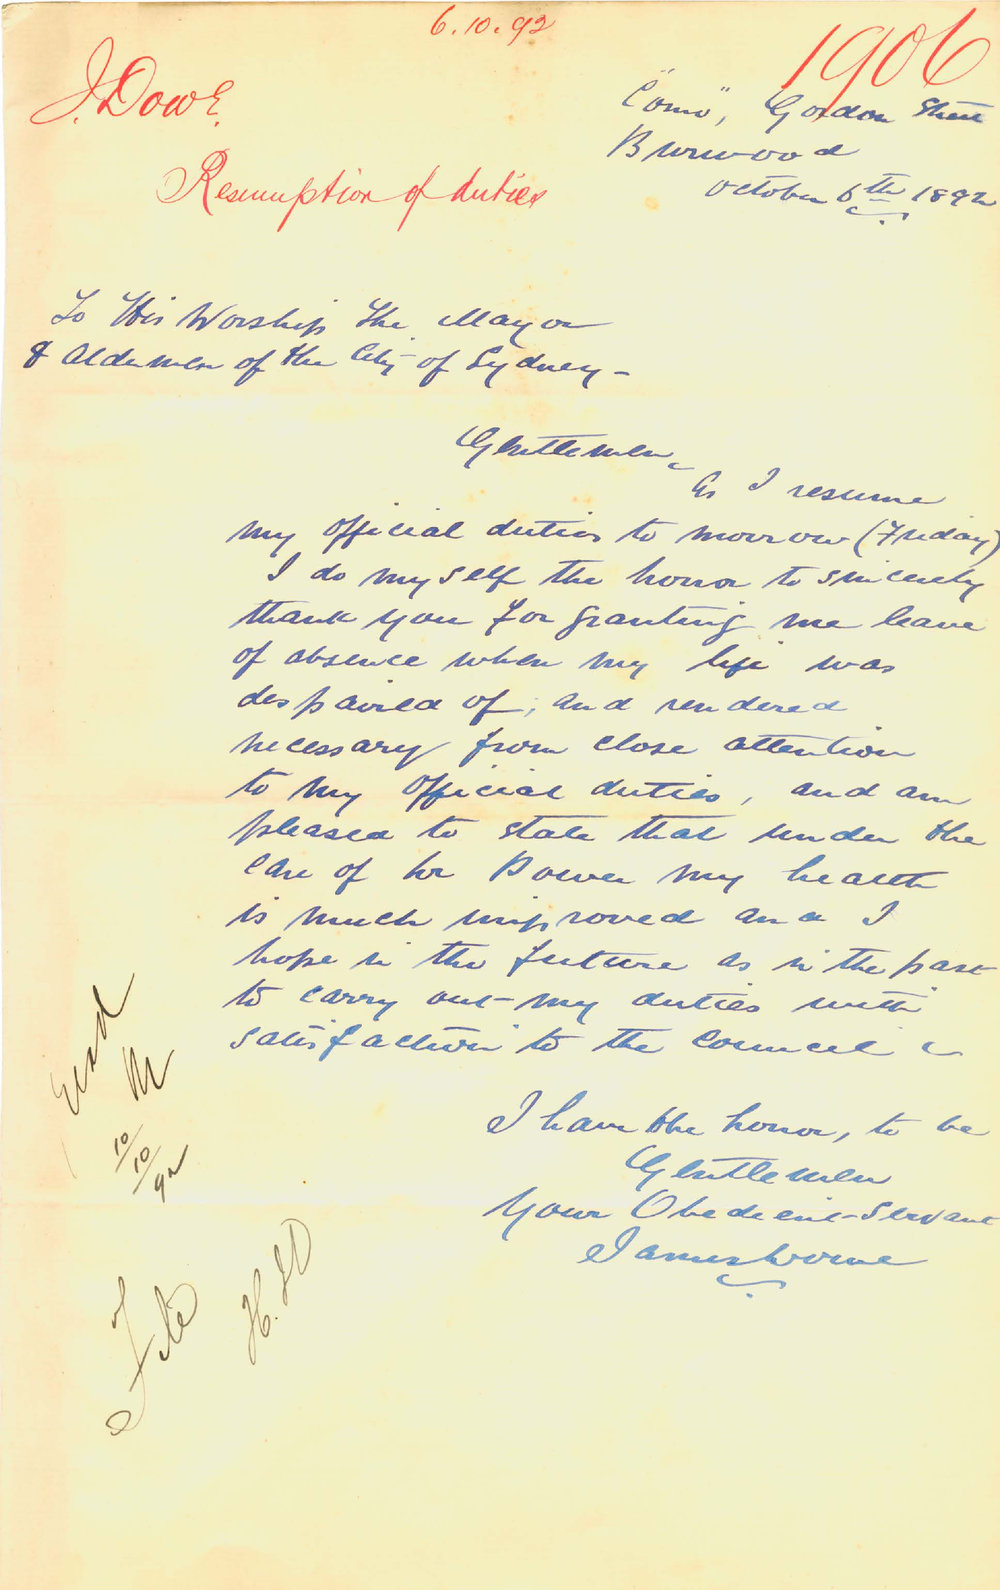 6.10.92
1906
J. Dowe.
Resumption of duties
"Como", Gordon Street
Burwood
October 6th 1892
To His Worship The Mayor
& Aldermen of the City of Sydney -
Gentlemen,
As I resume
my official duties to morrow (Friday)
I do myself the honor to sincerely
thank you for granting me leave
of absence when my life was
despaired of, and rendered
necessary from close attention
to my official duties, and am
pleased to state that under the
care of Dr Power my health
is much improved and I
hope in the future as in the past
to carry out my duties with
satisfaction to the Council
I have the honor, to be
Gentlemen
Your Obedient Servant
James
Read
10/10/92
File